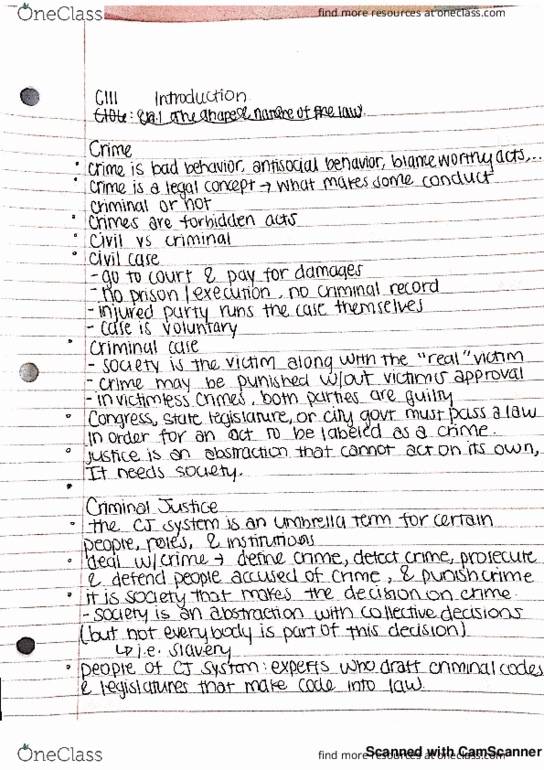 OneClass
find more resources at oneclass.com
C111 Introduction
the shape & nature of the law.
Crime
• Crime is bad behavior, antisocial behavior, blameworthy acts,...
• Crime is a legal concept → what makes some conduct
criminal or not
• Crimes are forbidden acts
• Civil vs criminal
• Civil case
- go to court & pay for damages
- no prison/execution, no criminal record
- injured party runs the case themselves
- case is voluntary
• Criminal case
- society is the victim along with the "real" victim
- crime may be punished w/out victim's approval
- in victimless crimes, both parties are guilty
• Congress, state legislature, or city govt must pass a law
in order for an act to be labeled as a crime.
• justice is an abstraction that cannot act on its own,
It needs society.
•
Criminal Justice
• the CJ system is an umbrella term for certain
people, roles, & institutions
• deal w/crime → define crime, detect crime, prosecute
& defend people accused of crime, & punish crime
• it is society that makes the decision on crime.
- society is an abstraction with collective decisions
(but not everybody is part of this decision)
↳ i.e. slavery
• people of CJ system: experts who draft criminal codes
& legislatures that make code into law.
OneClass
find more resources at oneclass.com
Scanned with CamScanner